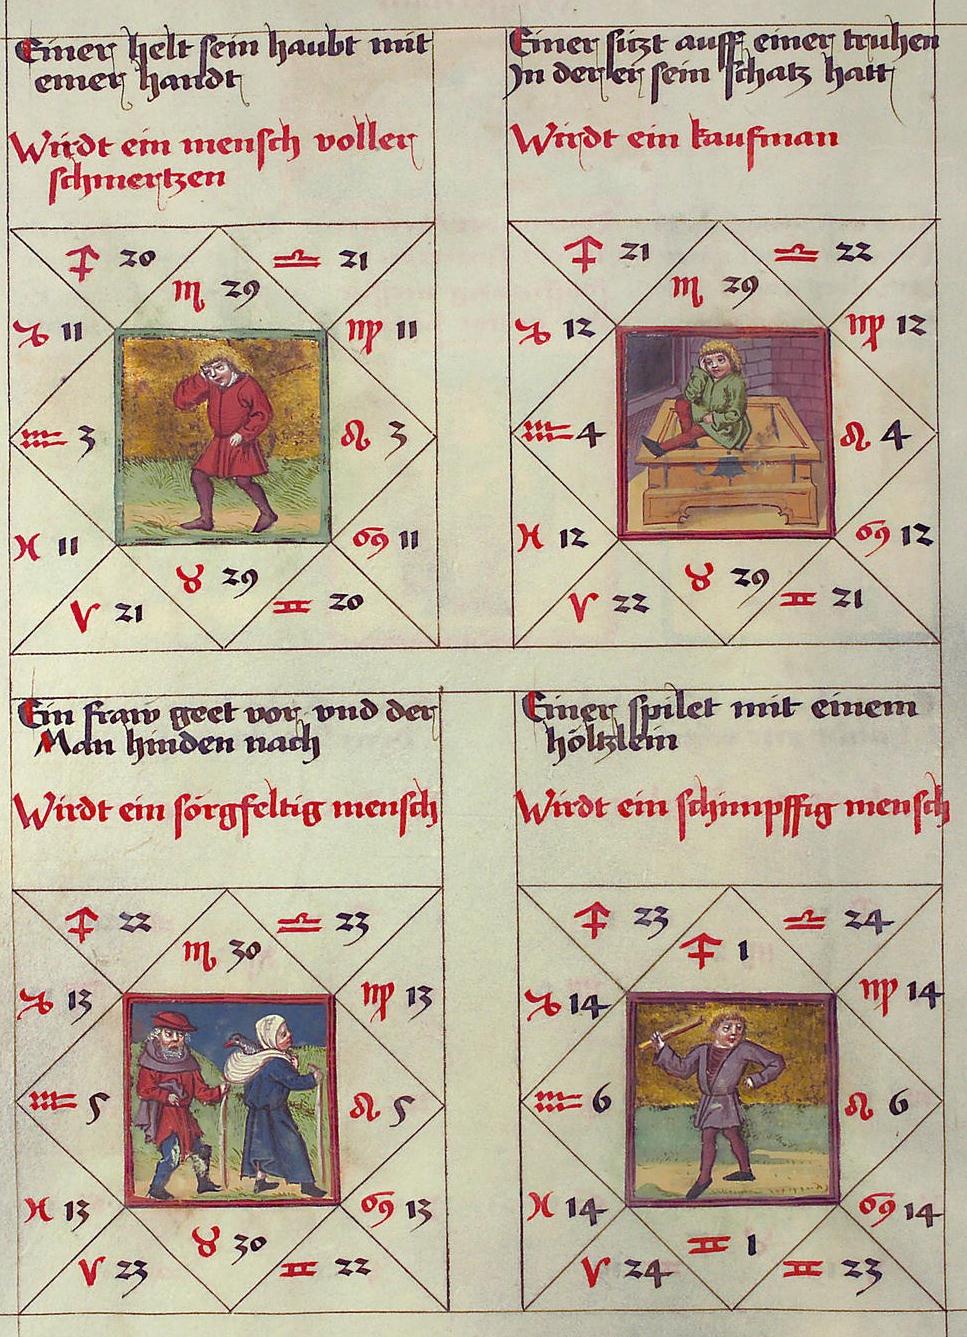 Einer helt sein haubt mit
einer handt
Wirdt ein mensch voller
schmertzen
♐ 20 ♎ 21
♏ 29
♑ 11 ♍ 11
♒ 3 ♌ 3
♓ 11 ♋ 11
♉ 29
♈ 21 ♊ 20
Einer sitzt auff einer truhen
In der er sein schatz hatt
Wirdt ein kaufman
♐ 21 ♎ 22
♏ 29
♑ 12 ♍ 12
♒ 4 ♌ 4
♓ 12 ♋ 12
♉ 29
♈ 22 ♊ 21
Ein fraw geet vor vnd der
Man hinden nach
Wirdt ein sörgfeltig mensch
♐ 22 ♎ 23
♏ 30
♑ 13 ♍ 13
♒ 5 ♌ 5
♓ 13 ♋ 13
♉ 30
♈ 23 ♊ 22
Einer spilet mit einem
höltzlein
Wirdt ein schimpffig mensch
♐ 23 ♎ 24
♐ 1
♑ 14 ♍ 14
♒ 6 ♌ 6
♓ 14 ♋ 14
♊ 1
♈ 24 ♊ 23